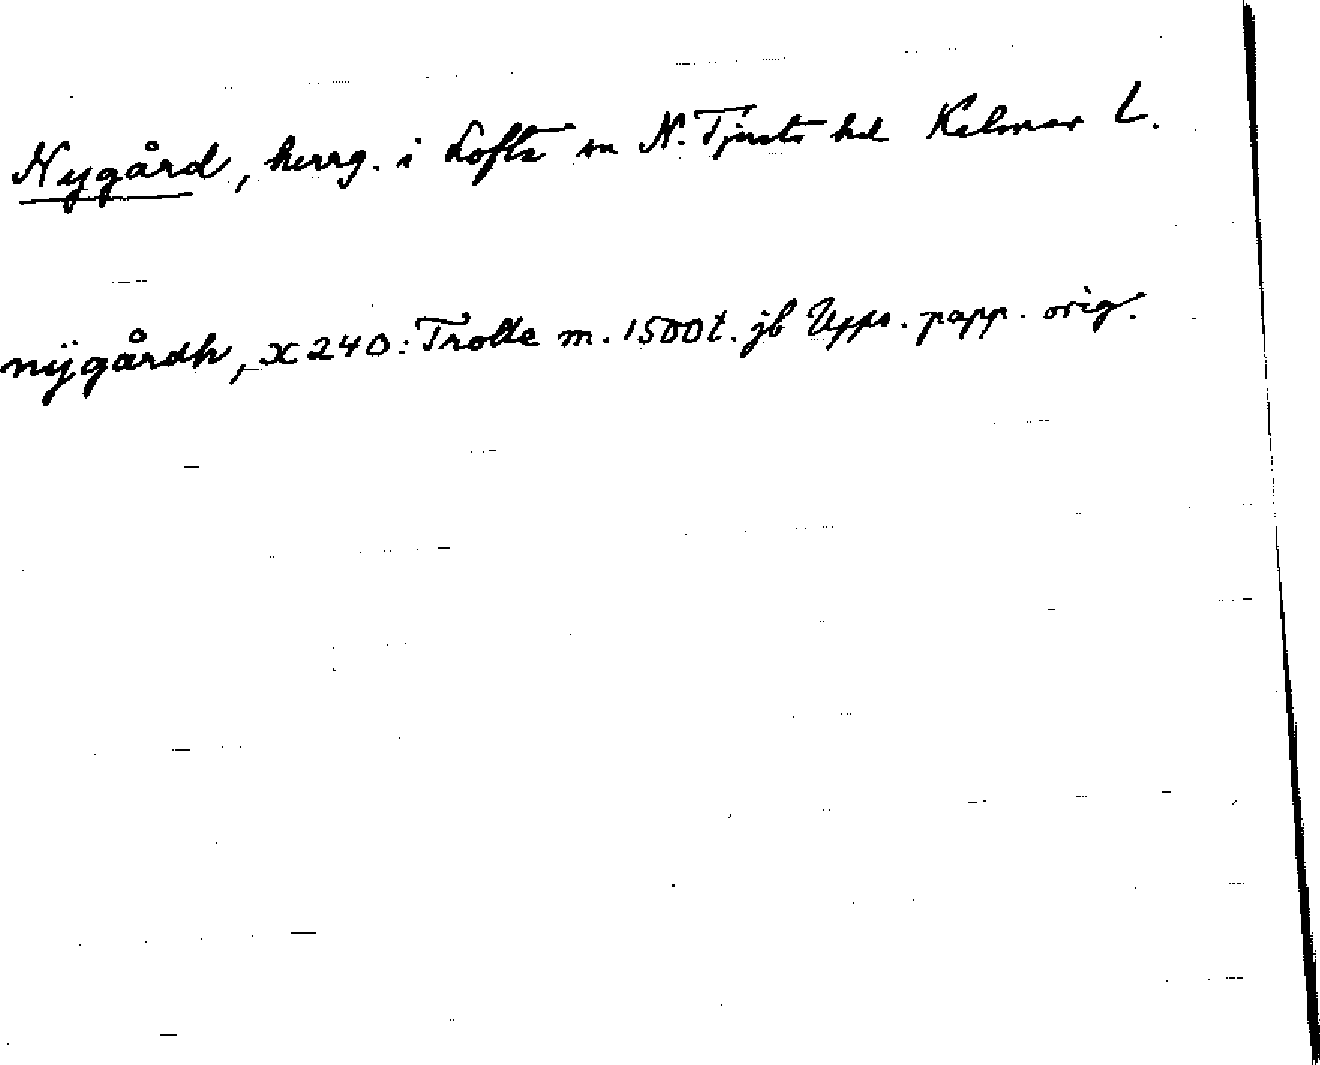 Nygård, herrg. i Lofta sn N. Tjusts hd Kalmar L.
nÿgårdh, x 240: Trolle m. 1500t. jb Upps. papp. orig.